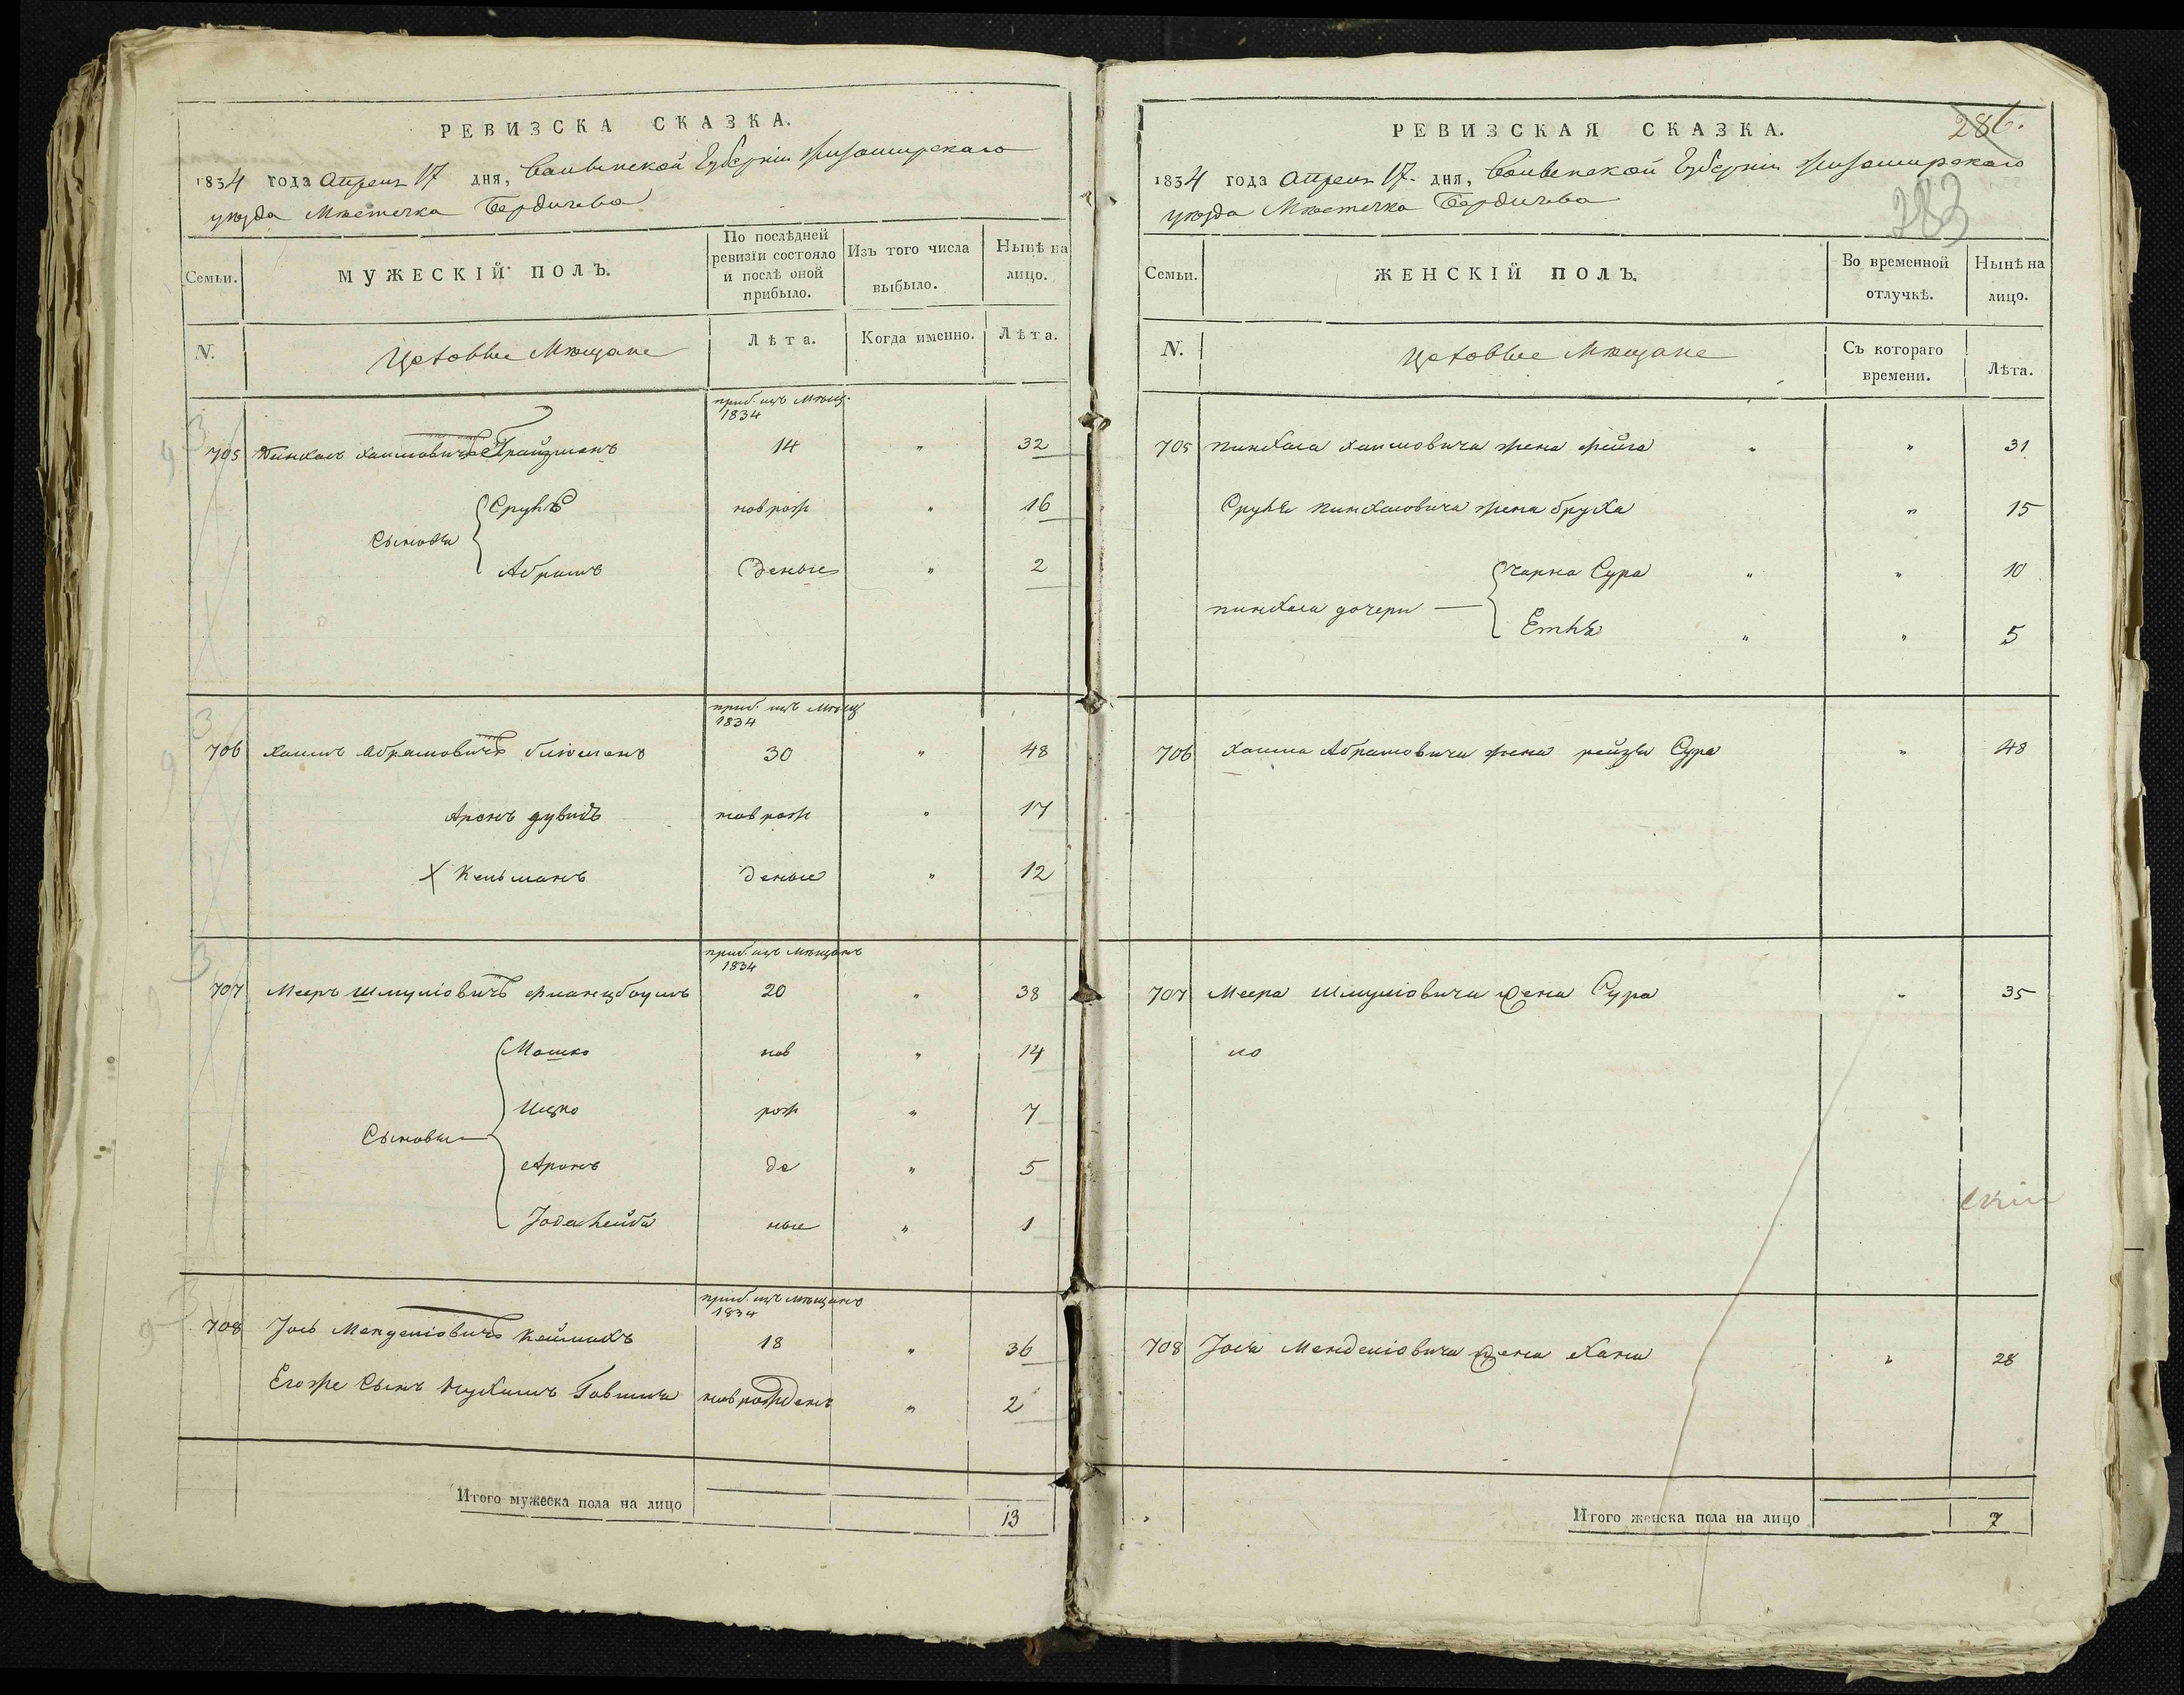 РЕВИЗСКА СКАЗКА.
1834 года Апреля 17 дня, Волынской Губерніи Житомирскаго
уѣзда Мѣстечка Бердичева
Семьи.
МУЖЕСКІЙ ПОЛЪ.
По послѣдней ревизіи состояло и послѣ оной прибыло.
Изъ того числа выбыло.
Нынѣ на лицо.
N.
Цеховые Мѣщане
Лѣта.
Когда именно.
Лѣта.
приб. изъ Мѣщ.
1834
705 Пинхасъ Хаимовичъ Грайзманъ 14 " 32
Срулъ новрож " 16
Сыновья
Абрамъ денные " 2
приб. изъ Мѣщ
1834
706 Хаимъ Абрамовичъ 30 " 48
Аронъ Дувидъ новрож " 17
X Кельманъ денные " 12
приб. изъ Мѣщанъ
1834
707 Мееръ Шмуліовичъ 20 " 38
Мошко нов " 14
Ицко рож " 7
Сыновья
Аронъ де " 5
Лейба ные " 1
приб. изъ мѣщанъ
1834
708 Іось Менделіовичъ 18 " 36
Егоже Сынъ Нухимъ новрожденъ " 2
Итого мужеска пола на лицо 13
РЕВИЗСКАЯ СКАЗКА.
286.
1834 года Апреля 17. дня, Волынской Губерніи Житомирскаго
283
уѣзда Мѣстечка Бердичева
Семьи.
ЖЕНСКІЙ ПОЛЪ.
Во временной отлучкѣ.
Нынѣ на лицо.
N.
Цеховые Мѣщане
Съ котораго времени.
Лѣта.
705 Пинхаса Хаимовича жена Фейга " " 31
Срула Пинхасовича жена Бруха " 15
Чарна Сура " " 10
Пинхаса дочери
Етля " " 5
706 Хаима Абрамовича жена Рейзя Сура " 48
707 Меера Шмуліовича жена Сура " 35
708 Іося Менделіовича жена Хана " 28
Итого женска пола на лицо 7